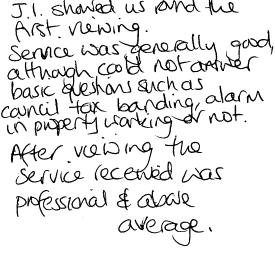 J.I. showed us round the
first viewing.
Service was generally good,
although could not answer
basic questions such as
council tax banding, alarm
in property working or not.
After viewing the
service received was
professional & above
average.